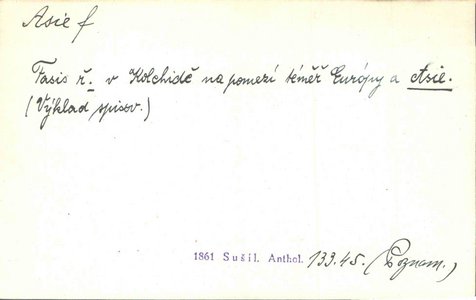 Asie f
Fasis ř. v Kolchidě na pomezí téměř Európy a Asie.
(Výklad spisov.)
1861 Sušil. Anthol. 133.45. (Poznam.)